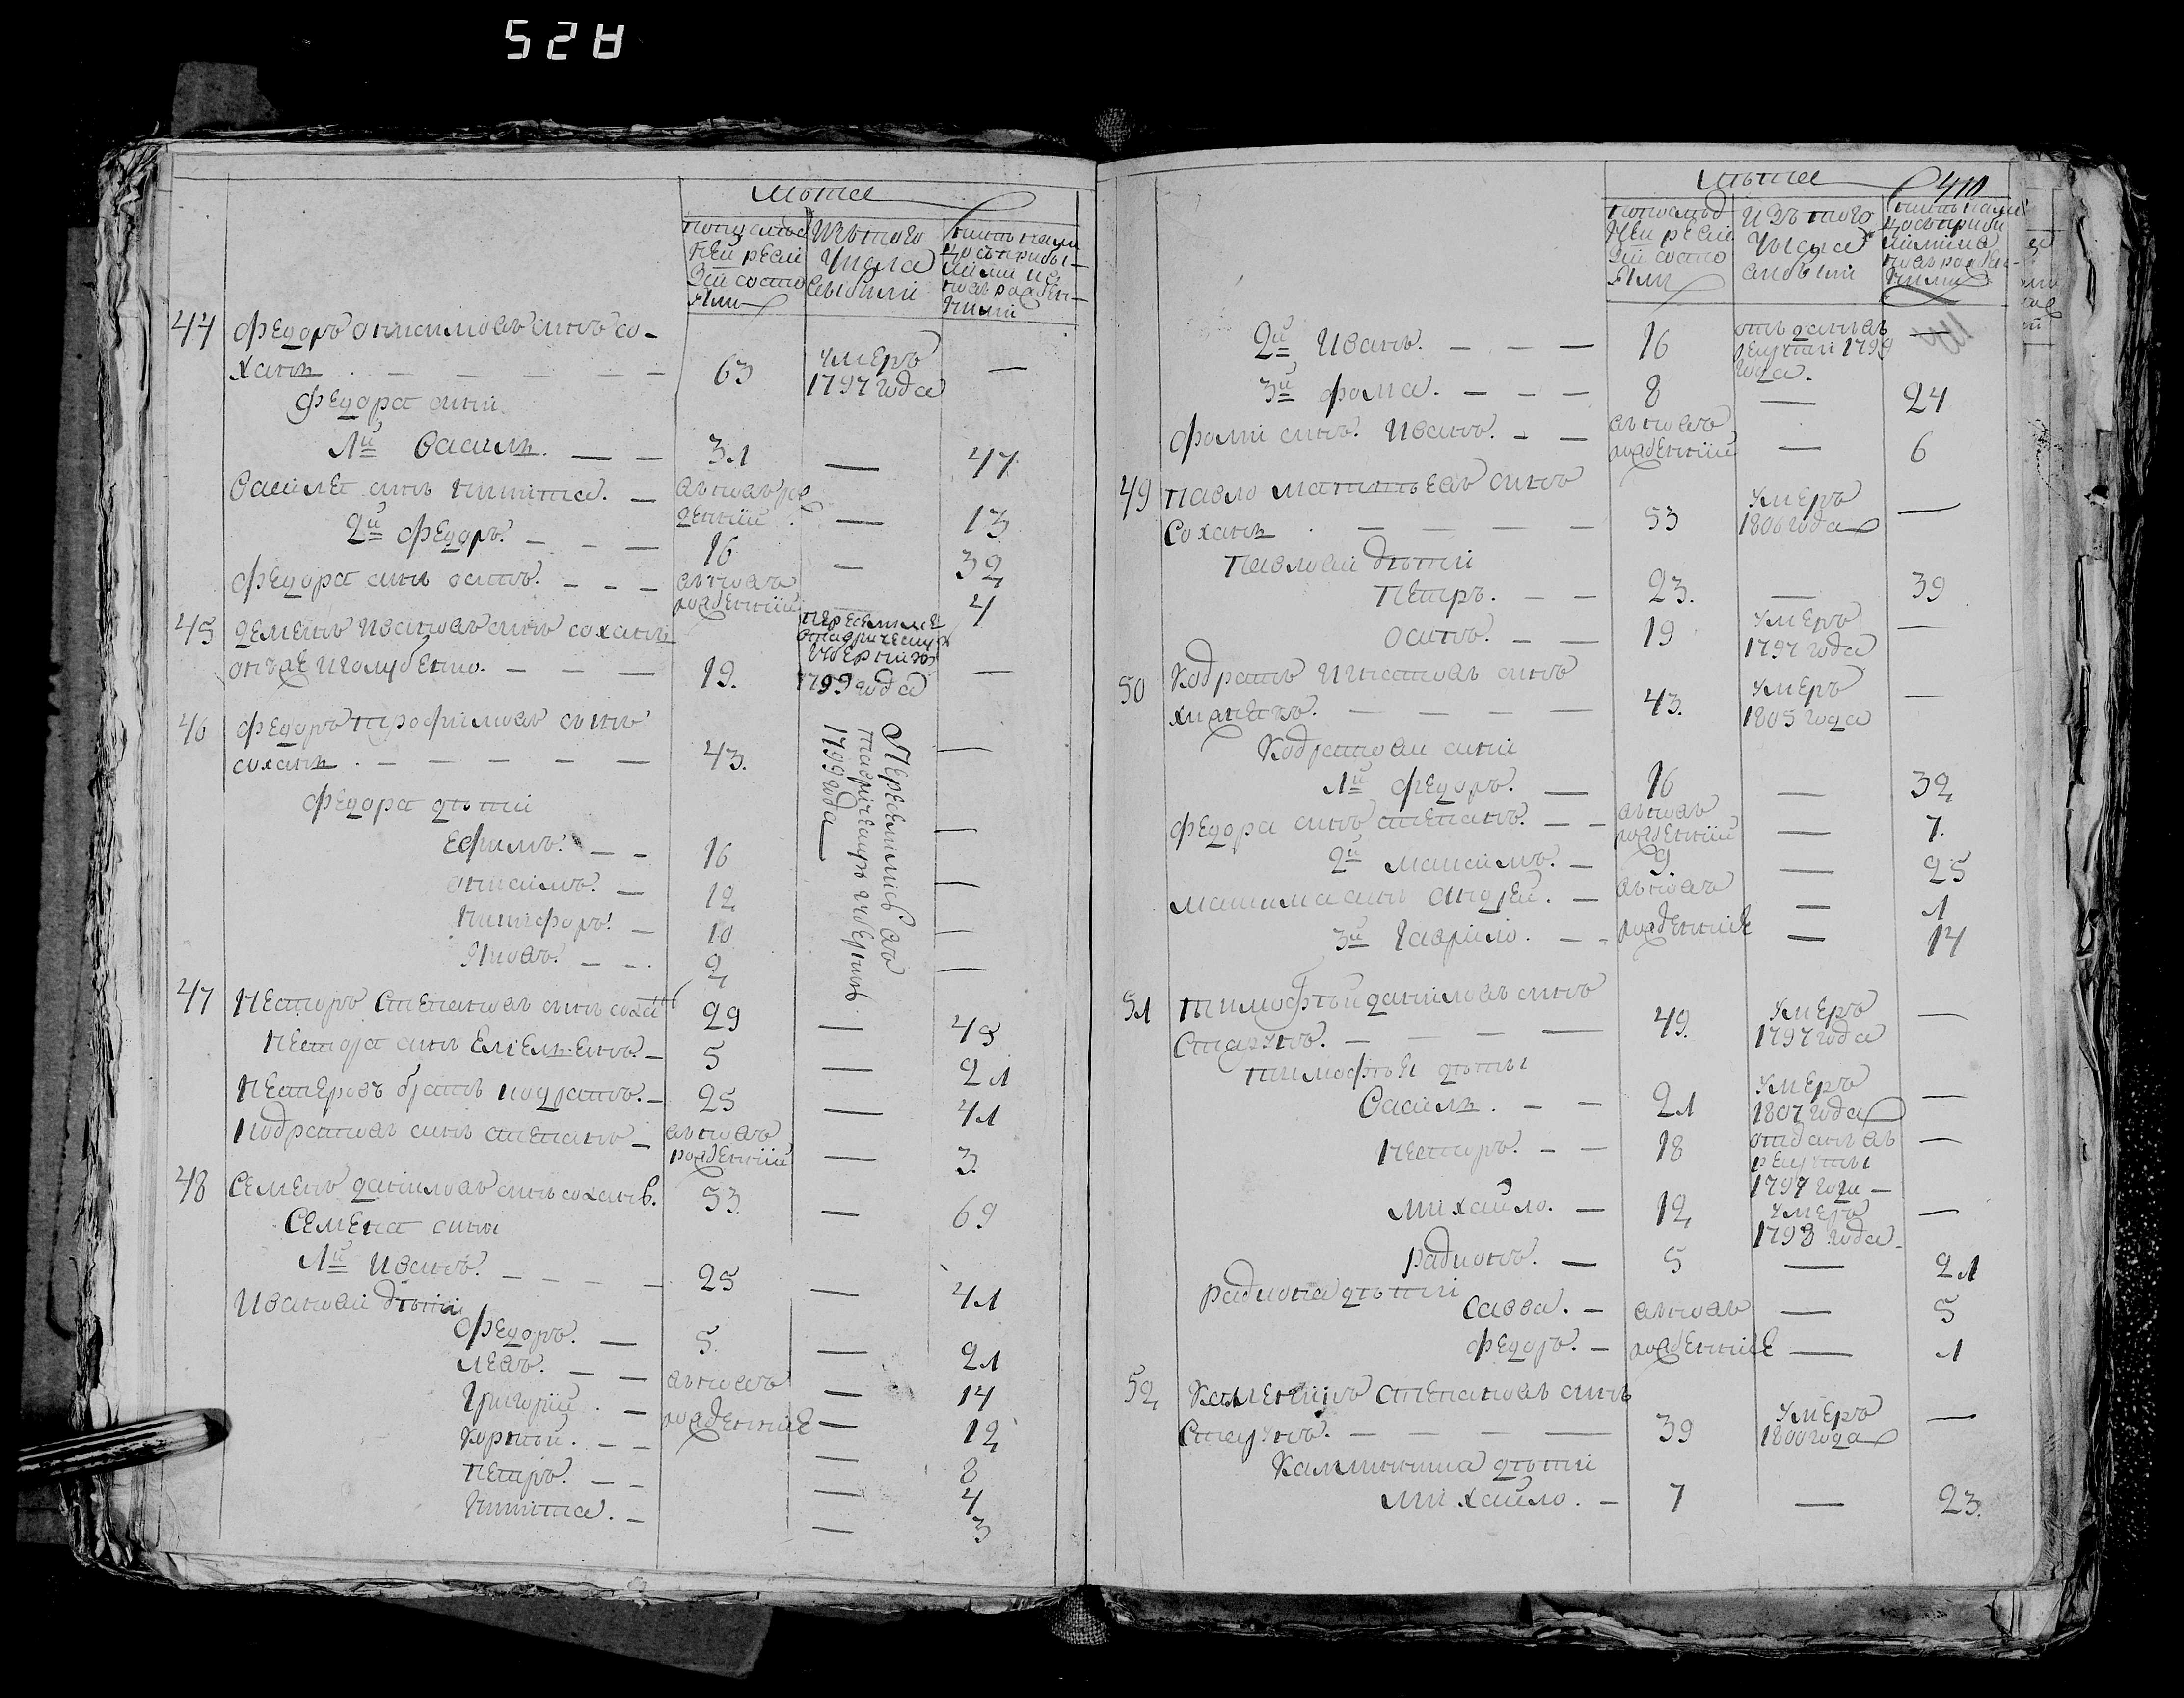 528
лѣта
по послѣд
ней реви
зіи состо
яли
изъ того
числа
выбыли
нынѣ на ли
цо съ прибы
лыми и в
новь рожден
ными
44 Федоръ Онисимовъ сынъ Со-
хань . — — — — — 63 умеръ 1797 года —
Федора сыни
1й Василь. — — 31 — 47
Василя сынъ Никита. — вновь рожденній — 13
2й Федоръ. — — — 16 — 32
Федора сынъ Осипъ. — — — вновь рожденній — 4
45 Деменъ Ивановъ сынъ Сохань
онъ же и Голубенко. — — — 19. 1799 года —
46 Федоръ Трофимовъ сынъ
Сохань . — — — — — 43. —
Переселились въ
таврическую губернію
1799 года
Федора дѣти
Ефимъ. — — 16 —
Онисимъ. — 12 —
Никифоръ. — 10 —
Яковъ. — — 2 —
47 Несторъ Степановъ сынъ Соха 29 — 45
Нестора сынъ Емельенъ. — 5 — 21
Нестеровъ братъ Кодратъ. — 25 — 41
Кодратовъ сынъ Степанъ — вновь рожденній — 3.
48 Семенъ Даниловъ сынъ Сохань. 53. — 69
Семена сыны
1й Иванъ. — — — — 25 — 41
Ивановы дѣти
Федоръ. — 5. — 21
Левъ. — — вновь — 14
Григорій . — рожденніе — 12
Корнѣй. — — — 8
Петръ. — — — 4
Никита. — — 3
лѣта 410
по послѣд
ней реви
зіи состо
яли
изъ того
числа
выбыли
нынѣ на ли
цо съ прибы
лыми и
новь рожден-
ными
2й Иванъ. — — — 16 отданъ въ рекруты 1799 года. —
3й Фома. — — — 8 — 24
Фомы сынъ Иванъ. — — вновь рожденній — 6
49 Павло Матвѣевъ сынъ
Сохань . — — — — 53 умеръ 1806 года —
Павловы дѣти
Петръ. — — 23. — 39
Осипъ. — — 19 умеръ 1797 года —
50 Кодратъ Игнатовъ сынъ
— — — — 43. умеръ 1805 года —
Кодратовы сыни
1й Федоръ. — 16 — 32
Федора сынъ Степанъ. — — вновь рожденній — 7.
2й Максимъ. — 9. — 25
Максима сынъ Андрей. — вновь — 1
3й Гаврило. — — рожденніе — 14
51 Тимофѣй Даниловъ сынъ
— — — 49. умеръ 1797 года —
Тимофѣя дѣты
Василь. — — 21 умеръ 1807 года —
Несторъ. — — 18 отданъ въ рекруты 1797 года —
Михайло. — 12 умеръ 1798 года. —
Радионъ. — 5 — 21
Радиона дѣти
Савва. — вновь — 5
Федоръ. — рожденніе — 1
52 Каленникъ Степановъ сынъ
— — — — 39 умеръ 1800 года —
Калинника дѣти
Михайло. — 7 — 23.